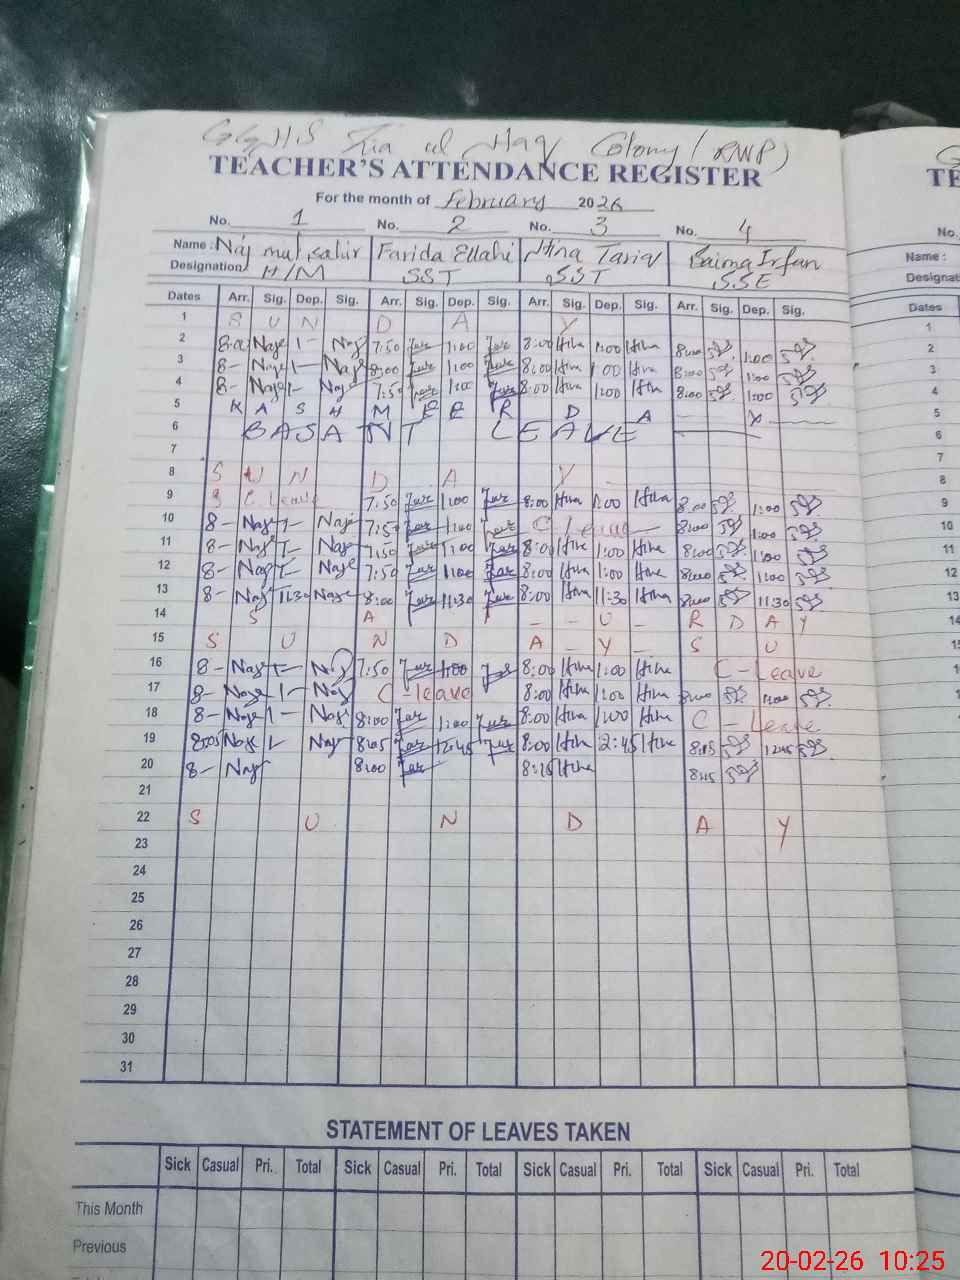 GGHS Zia ul Haq Colony (RWP)
TEACHER'S ATTENDANCE REGISTER
For the month of February 2026
No. 1 No. 2 No. 3 No. 4
Name: Naj mul sahir Farida Ellahi Hina Tariq Saima Irfan
Designation H/M SST SST S.S.E
Dates Arr. Sig. Dep. Sig. Arr. Sig. Dep. Sig. Arr. Sig. Dep. Sig. Arr. Sig. Dep. Sig.
1 S U N D A Y
2 8:00 Naje 1- Naj 7:50 1:00 8:00 Hina 1:00 Hina 8:00 1:00
3 8- Naje 1- Naje 8:00 1:00 8:00 Hina 1:00 Hina 8:00 1:00
4 8- Naje 1- Naje 7:50 1:00 8:00 Hina 1:00 Hina 8:00 1:00
5 K A S H M E E R D A Y
6 BASANT LEAVE
7
8 S U N D A Y
9 C Leave 7:50 1:00 8:00 Hina 1:00 Hina 8:00 1:00
10 8- Naje 1- Naje 7:50 1:00 C Leave 8:00 1:00
11 8- Naje 1- Naje 7:50 1:00 8:00 Hina 1:00 Hina 8:00 1:00
12 8- Naje 1- Naje 7:50 1:00 8:00 Hina 1:00 Hina 8:00 1:00
13 8- Naje 11:30 Naje 8:00 11:30 8:00 Hina 11:30 Hina 8:00 11:30
14 S A T U R D A Y
15 S U N D A Y S U
16 8- Naje 1- Naj 7:50 1:00 8:00 Hina 1:00 Hina C-Leave
17 8- Naje 1- Naj C-leave 8:00 Hina 1:00 Hina 8:00 1:00
18 8- Naje 1- Naje 8:00 1:00 8:00 Hina 1:00 Hina C-Leave
19 8:05 Naje 1- Naje 8:05 12:45 8:00 Hina 12:45 Hina 8:15 12:45
20 8- Naje 8:00 8:15 Hina 8:15
21
22 S U N D A Y
23
24
25
26
27
28
29
30
31
STATEMENT OF LEAVES TAKEN
Sick Casual Pri. Total Sick Casual Pri. Total Sick Casual Pri. Total Sick Casual Pri. Total
This Month
Previous
G
TE
No.
Name :
Designat
Dates
1
2
3
4
5
6
7
8
9
10
11
12
13
14
15
20-02-26 10:25